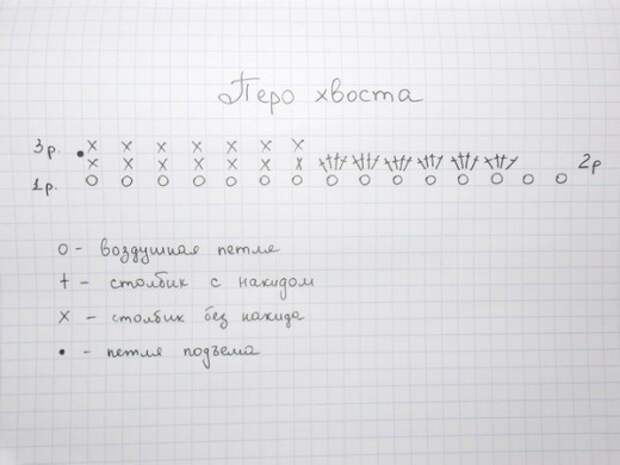 Перо хвоста
3р. • x x x x x x x
x x x x x x x ††† ††† ††† ††† ††† ††† 2р
1р. o o o o o o o o o o o o o o o
o - воздушная петля
† - столбик с накидом
x - столбик без накида
• - петля подъема